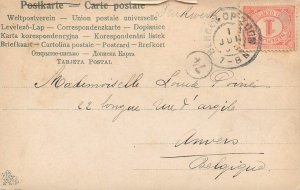 Postkarte — Carte postale
Weltpostverein — Union postale universelle
Levelező-Lap — Correspondenzkarte — Dopisnice
Karta korespondencyjna — Korespondenční lístek
Briefkaart — Cartolina postale — Postcard — Brefkort
TARJETA POSTAL
BERGEN OP ZOOM
1
JUN
7-8N
1
74
Mademoiselle Louise
22 longue rue d'argile
Anvers
Belgique